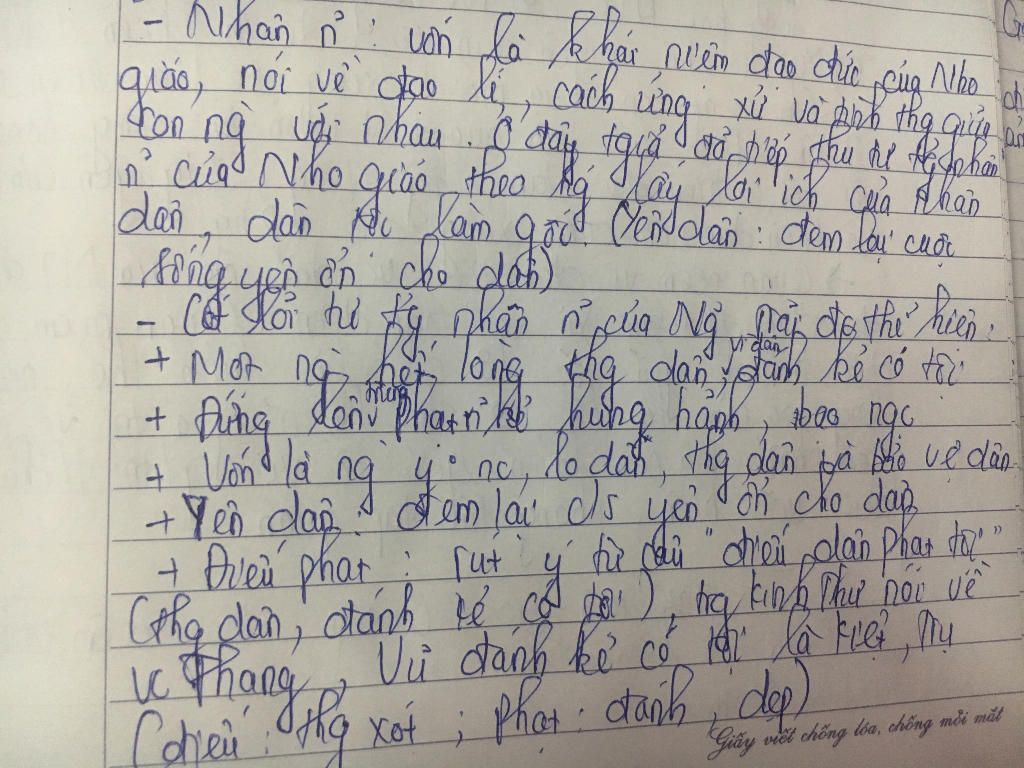 - Nhân n̉ : vốn là khái niệm đạo đức của Nho
giáo, nói về đạo lí, cách ứng xử và tình thg giữa
con ng với nhau. Ở đây tgiả đã tiếp thu tư tg nhân
n̉ của Nho giáo theo hg lấy lợi ích của nhân
dân, dân tộc làm gốc. (Yên dân : đem lại cuộc
sống yên ổn cho dân)
- Cốt lõi tư tg nhân n̉ của Ng Trãi đc thể hiện :
+ Một ng hết lòng thg dân, vì dân đánh kẻ có tội
+ Đứng lên trừng phạt n̉ kẻ hung hãnh, bạo ngc
+ Vốn là ng y nc, lo dân, thg dân và bảo vệ dân
+ Yên dân : đem lại c/s yên ổn cho dân
+ Điếu phạt : rút ý từ câu "điếu dân phạt tội"
(thg dân, đánh kẻ có tội), trg kinh Thư nói về
vc Thang, Vũ đánh kẻ có tội là Kiệt, Trụ
(điếu : thg xót ; phạt : đánh, dẹp)
Giấy viết chống lóa, chống mỏi mắt